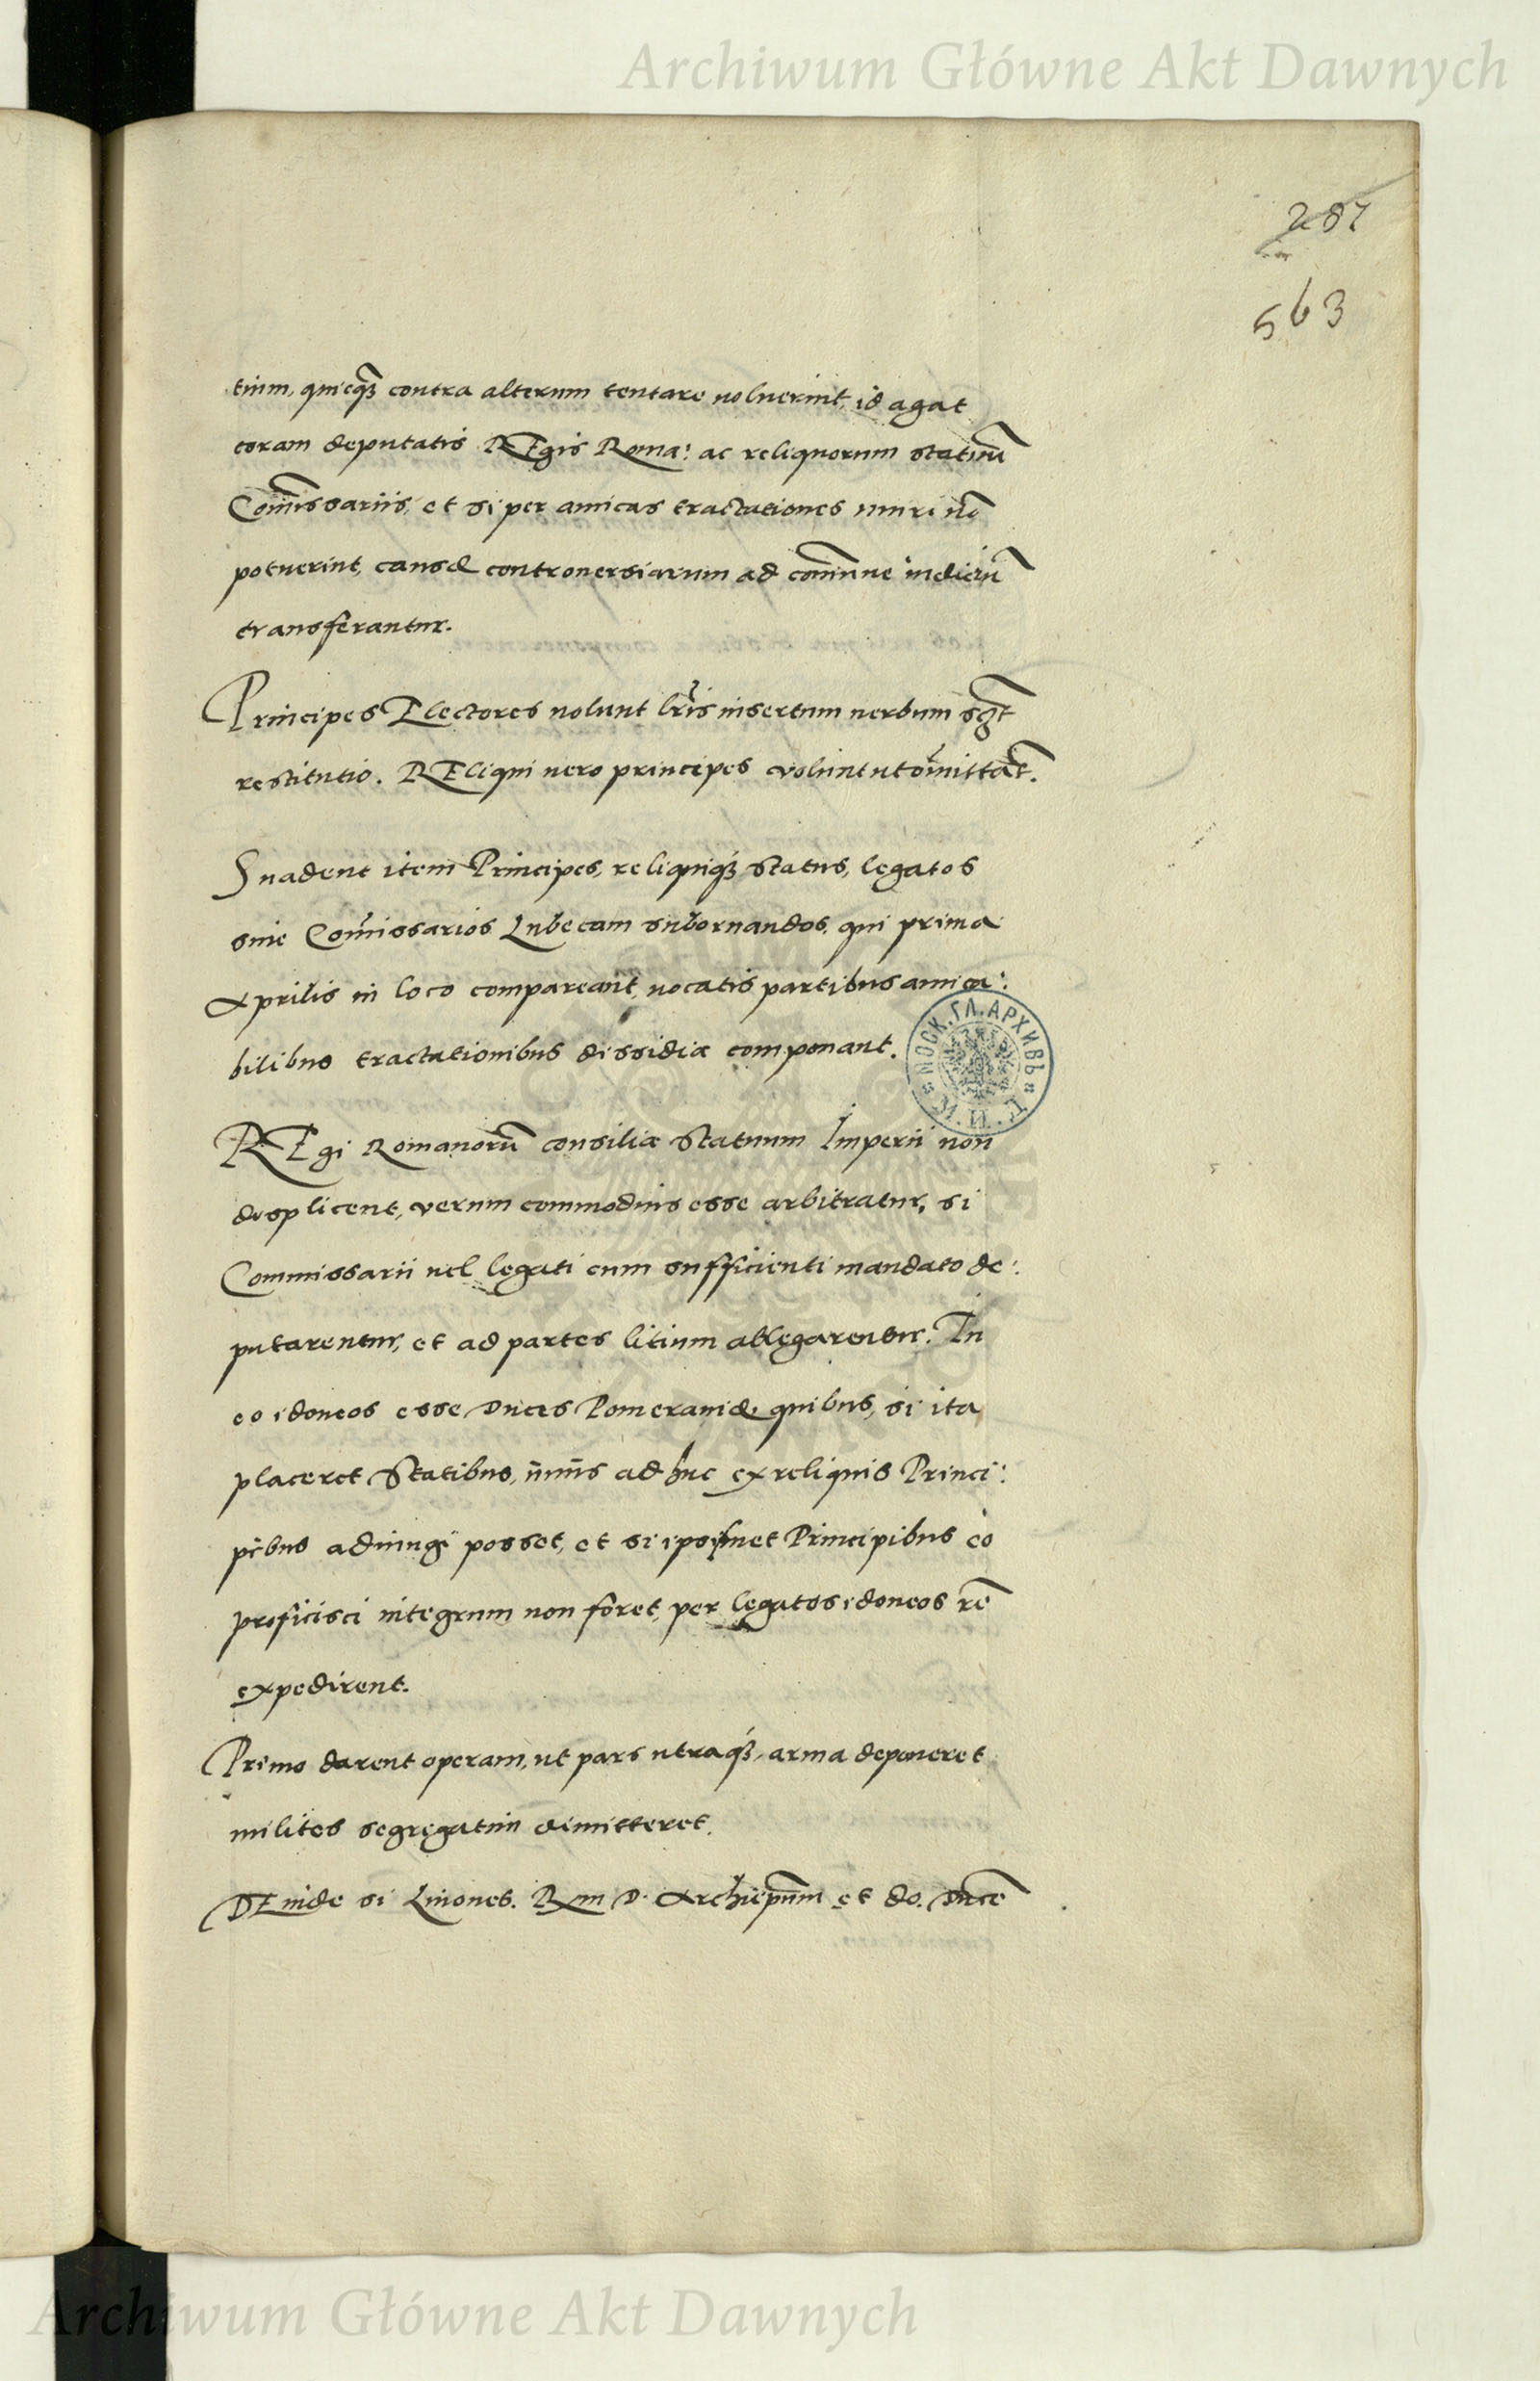 Archiwum Główne Akt Dawnych
287
563
tium, quicq3 contra alterum tentare uoluerint, id agat
coram deputatis REgis Roma: ac reliquorum statuū
Com̄issariis, et si per amicas tractationes uniri nō
potuerint, causæ controuersiarum ad com̄une iudiciū
transferantur.
Principes Electores uolunt lr̄is insertum uerbum sgt
restitutio. REliqui uero principes volunt ut om̄ittat̄.
Suadent item Principes, reliquiq3 status, legatos
siue Com̄issarios Lubecam subornandos, qui prima
Aprilis in loco compareant, uocatis partibus amica:
bilibus tractationibus dissidia componant.
МОСК. ГЛ. АРХИВЪ
REgi Romanorū consilia Statuum Imperii non
displicent, verum commodius esse arbitratur, si
Commissarii uel legati cum sufficienti mandato de:
putarentur, et ad partes litium ablegarentur. In
eo idoneos esse Duces Pomeraniæ, quibus, si ita
placeret Statibus, unus adhuc ex reliquis Princi:
pibus adiungi posset, et si ipsismet Principibus eo
proficisci integrum non foret, per legatos idoneos rē
expedirent.
Primo darent operam, ut pars utraq3, arma deponeret
milites segregatim dimitteret.
DEinde si Liuones. Rm D. Archiep̄um et do. Ducē
Archiwum Główne Akt Dawnych